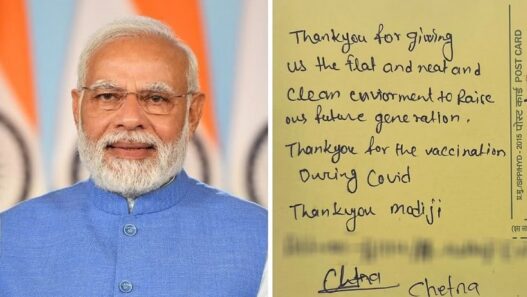 Thankyou for giving
us the flat and neat and
clean enviorment to Raise
our future generation.
Thankyou for the vaccination
During Covid
Thankyou modiji
Chetna
Chetna
POST CARD